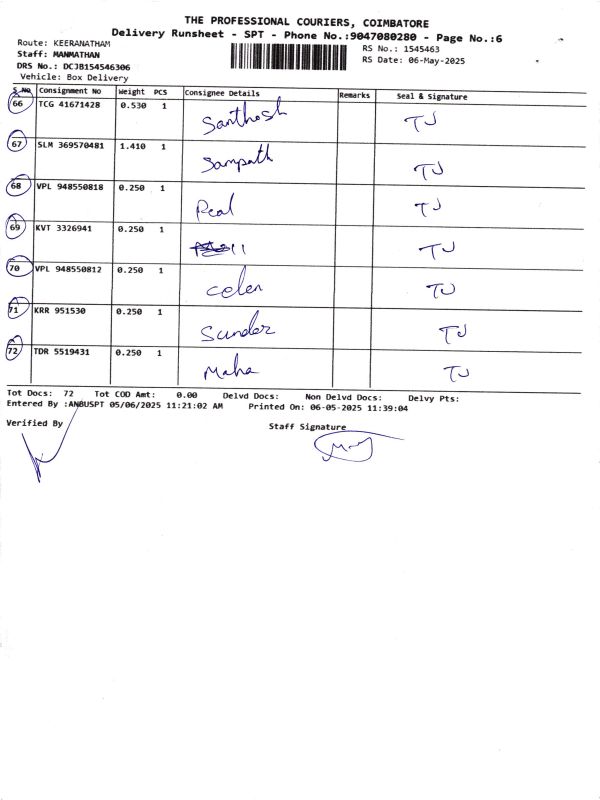 THE PROFESSIONAL COURIERS, COIMBATORE
Delivery Runsheet - SPT - Phone No.:9047080280 - Page No.:6
Route: KEERANATHAM
RS No.: 1545463
Staff: MANMATHAN
RS Date: 06-May-2025
DRS No.: DCJB154546306
Vehicle: Box Delivery
S No Consignment No Weight PCS Consignee Details Remarks Seal & Signature
66 TCG 41671428 0.530 1 Santhosh TJ
67 SLM 369570481 1.410 1 Sampath TJ
68 VPL 948550818 0.250 1 Real TJ
69 KVT 3326941 0.250 1 11 TJ
70 VPL 948550812 0.250 1 Celen TJ
71 KRR 951530 0.250 1 Sunder TJ
72 TDR 5519431 0.250 1 Maha TJ
Tot Docs: 72 Tot COD Amt: 0.00 Delvd Docs: Non Delvd Docs: Delvy Pts:
Entered By :ANBUSPT 05/06/2025 11:21:02 AM Printed On: 06-05-2025 11:39:04
Verified By Staff Signature